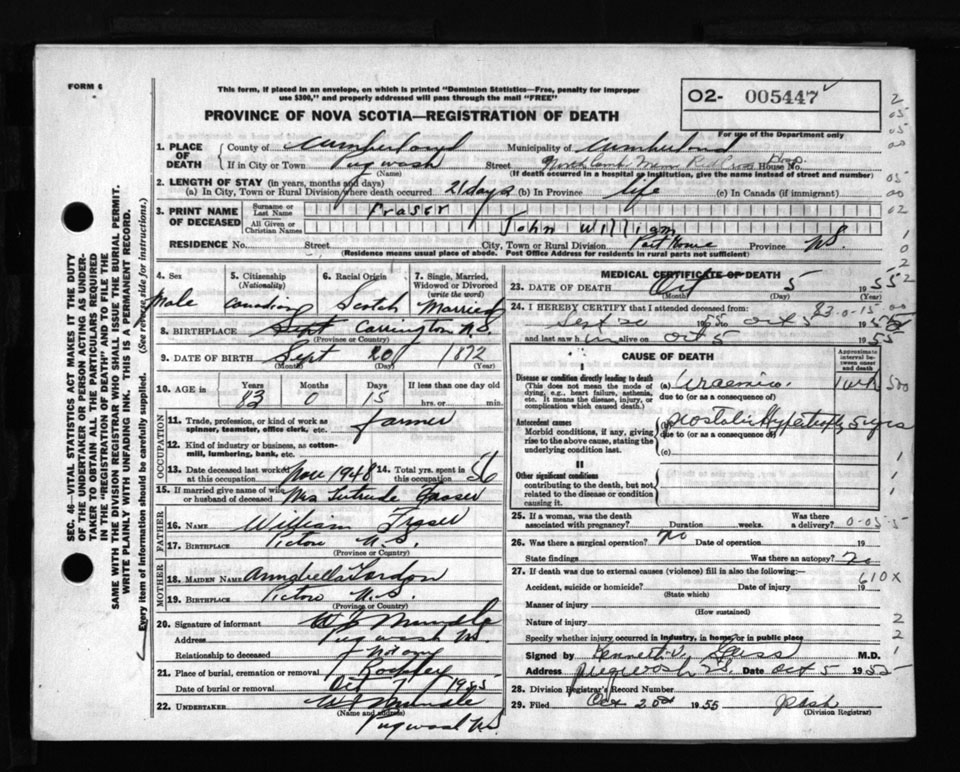 FORM 6
This form, if placed in an envelope, on which is printed "Dominion Statistics—Free, penalty for improper
use $300," and properly addressed will pass through the mail "FREE"
O2- 005447
PROVINCE OF NOVA SCOTIA—REGISTRATION OF DEATH
For use of the Department only
1. PLACE OF DEATH
County of Cumberland Municipality of Cumberland
If in City or Town Pugwash Street North Cumb. Mem Red Cross Hosp. House No.
(Name) (If death occurred in a hospital or institution, give name instead of street and number)
2. LENGTH OF STAY (in years, months and days)
(a) In City, Town or Rural Division where death occurred 21 days (b) In Province life (c) In Canada (if immigrant)
3. PRINT NAME OF DECEASED
Surname or Last Name Fraser
All Given or Christian Names John William
RESIDENCE No. Street City, Town or Rural Division Port Howe Province N.S.
(Residence means usual place of abode. Post Office Address for residents in rural parts not sufficient)
4. Sex Male
5. Citizenship (Nationality) Canadian
6. Racial Origin Scotch
7. Single, Married, Widowed or Divorced (write the word) Married
8. BIRTHPLACE Carrington N.S.
(Province or Country)
9. DATE OF BIRTH Sept 20 1872
(Month) (Day) (Year)
10. AGE in Years Months Days If less than one day old
83 0 15 hrs. or min.
OCCUPATION
11. Trade, profession, or kind of work as spinner, teamster, office clerk, etc. farmer
12. Kind of industry or business, as cotton-mill, lumbering, bank, etc.
13. Date deceased last worked at this occupation Nov 1948 14. Total yrs. spent in this occupation 56
15. If married give name of wife or husband of deceased Mrs Gertrude Fraser
FATHER
16. NAME William Fraser
17. BIRTHPLACE Pictou N.S.
(Province or Country)
MOTHER
18. MAIDEN NAME Annabella Gordon
19. BIRTHPLACE Pictou N.S.
(Province or Country)
20. Signature of informant W Mundle
Address Pugwash N.S.
Relationship to deceased not any
21. Place of burial, cremation or removal Rockley
Date of burial or removal Oct 7 1955
22. UNDERTAKER W Mundle
(Name and address)
Pugwash N.S.
MEDICAL CERTIFICATE OF DEATH
23. DATE OF DEATH Oct 5 1955
(Month) (Day) (Year)
24. I HEREBY CERTIFY that I attended deceased from: 83-0-15
Sept 20 1955 to Oct 5 1955
and last saw him alive on Oct 5 1955
CAUSE OF DEATH
Approximate interval between onset and death
I
Disease or condition directly leading to death (a) Uraemia. 1 wk
(This does not mean the mode of dying, e.g., heart failure, asthenia, etc. It means the disease, injury, or complication which caused death.)
due to (or as a consequence of)
Antecedent causes (b) Prostatic Hypertrophy 5 yrs
Morbid conditions, if any, giving rise to the above cause, stating the underlying condition last.
due to (or as a consequence of)
(c)
II
Other significant conditions
contributing to the death, but not related to the disease or condition causing it.
25. If a woman, was the death associated with pregnancy? Duration weeks. Was there a delivery?
26. Was there a surgical operation? no Date of operation 19
State findings Was there an autopsy? no
27. If death was due to external causes (violence) fill in also the following:—
610X
Accident, suicide or homicide? Date of injury 19
(State which)
Manner of injury
(How sustained)
Nature of injury
Specify whether injury occurred in industry, in home or in public place
Signed by Kenneth V. Gass M.D.
Address Pugwash N.S. Date Oct 5 1955
28. Division Registrar's Record Number
29. Filed Oct 1955
(Division Registrar)
SEC. 46—VITAL STATISTICS ACT MAKES IT THE DUTY
OF THE UNDERTAKER OR PERSON ACTING AS UNDER-
TAKER TO OBTAIN ALL THE PARTICULARS REQUIRED
IN THE "REGISTRATION OF DEATH" AND TO FILE THE
SAME WITH THE DIVISION REGISTRAR WHO SHALL ISSUE THE BURIAL PERMIT.
WRITE PLAINLY WITH UNFADING INK. THIS IS A PERMANENT RECORD.
Every item of information should be carefully supplied. (See reverse side for instructions.)